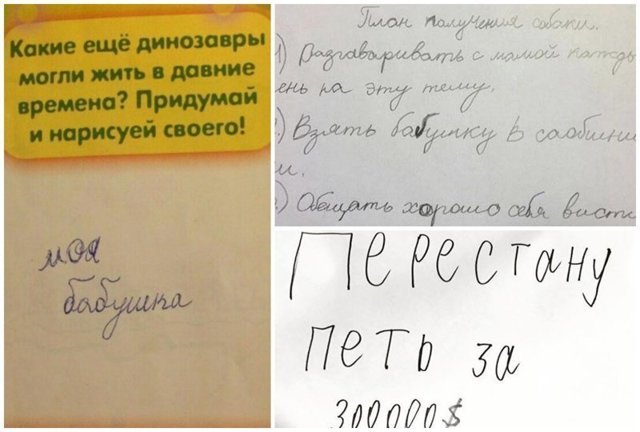 Какие ещё динозавры
могли жить в давние
времена? Придумай
и нарисуей своего!
моя
бабушка
План получения собаки.
1) Разгаваривать с мамой кажд
ень на эту тему.
.) Взять бабушку в саобшни
и.
.) Обещать хорошо себя висти
Перестану
петь за
300000$